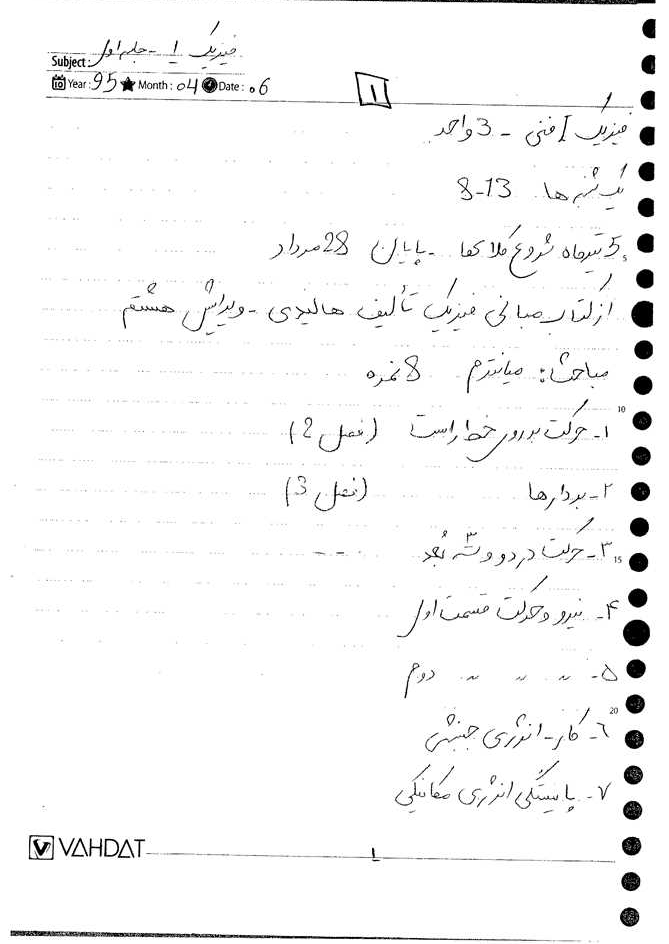 Subject: فیزیک 1 - جلسه اول
Year: 95 Month: 04 Date: 06
1
فیزیک I فنی - 3 واحد
یک شنبه ها 8-13
5 تیرماه شروع کلاسها - پایان 28 مرداد
از کتاب مبانی فیزیک تألیف هالیدی - ویرایش هشتم
مباحث: میانترم 8 نمره
10
۱- حرکت بر روی خط راست (فصل 2)
۲- بردارها (فصل 3)
۳- حرکت در دو و سه بُعد - - -
15
۴- نیرو و حرکت قسمت اول
۵- " " " دوم
20
۶- کار - انرژی جنبشی
۷- پایستگی انرژی مکانیکی
VAHDAT
1